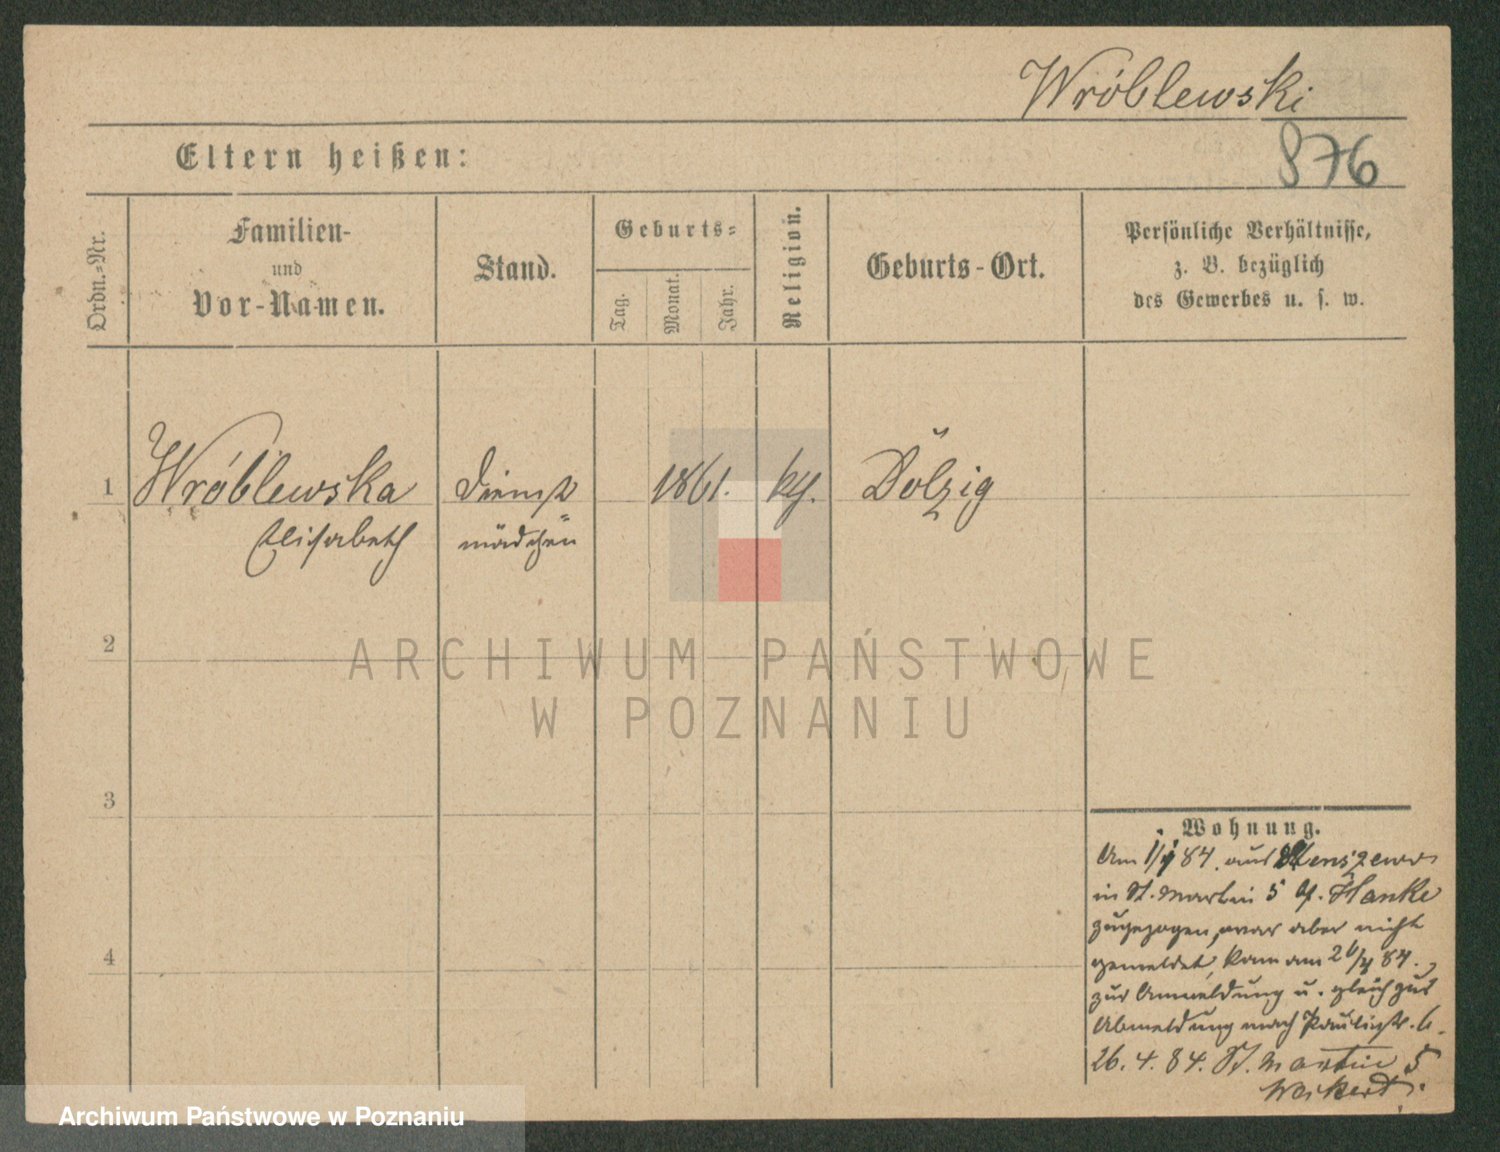 Wróblewski
876
Eltern heißen:
Ordn.-Nr.
Familien-
und
Vor-Namen.
Stand.
Geburts-
Tag.
Monat.
Jahr.
Religion.
Geburts-Ort.
Persönliche Verhältnisse,
z. B. bezüglich
des Gewerbes u. s. w.
1 Wróblewska Dienst 1861. kth. Dolzig
Elisabeth mädchen
2
3
4
Wohnung.
Am 1/4 84. aus
in St. Martin 5 b/. Hanke
zugezogen, war aber nicht
gemeldet, kam am 26/4 84.
zur Anmeldung u. gleich zur
Abmeldung nach Paulistr. 6.
26. 4. 84. St. Martin 5
ARCHIWUM PAŃSTWOWE
W POZNANIU
Archiwum Państwowe w Poznaniu